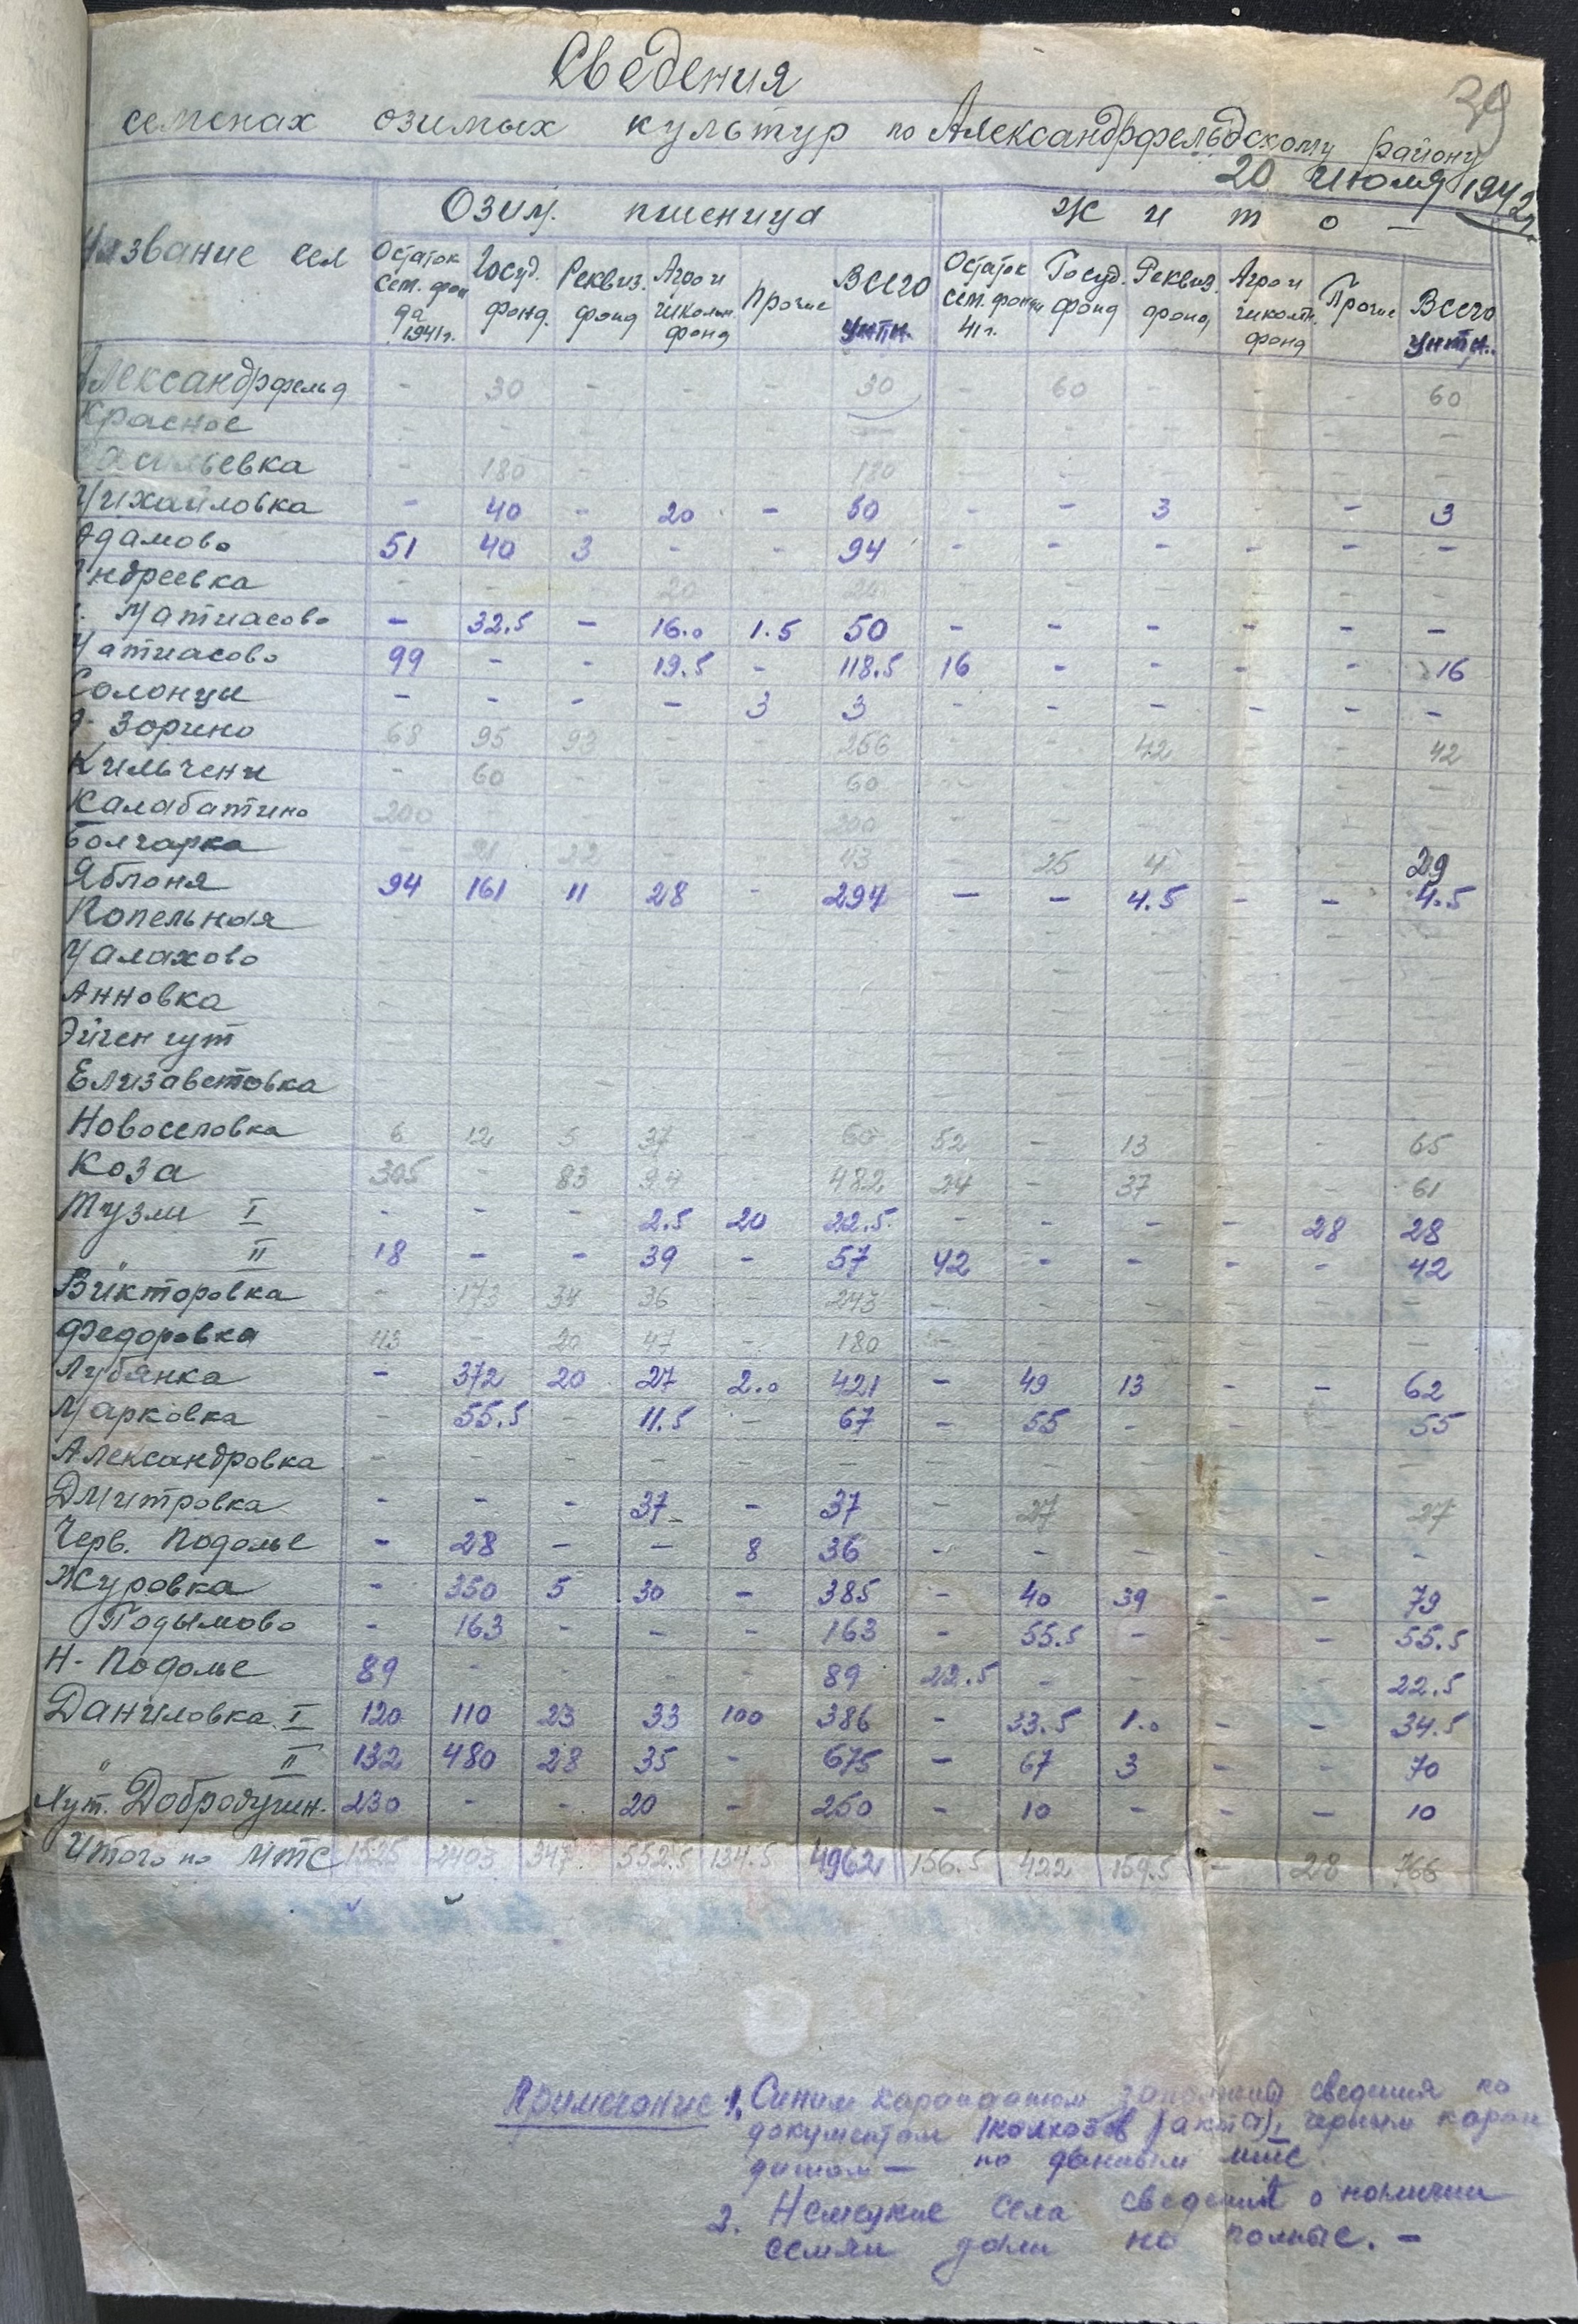 39
Сведения
семенах озимых культур по Александрфельдскому району
20 июля 1942 г.
Название сел Озим. пшеница Жито —
Остаток сем. фонда 1941 г. Госуд. фонд. Реквиз. фонд Агро и школьн. фонд Прочие Всего цнтн. Остаток сем. фонда 41 г. Госуд. фонд Реквиз. фонд Агро и школьн. фонд Прочие Всего цнтн.
Александрфельд - 30 - - - 30 - 60 - - - 60
Красное - - - - - - - - - - - -
Васильевка - 180 - - - 180 - - - - - -
Михайловка - 40 - 20 - 50 - - 3 - - 3
Адамово 51 40 3 - - 94 - - - - - -
Андреевка - - - 20 - 20 - - - - - -
Матиасово - 32.5 - 16.0 1.5 50 - - - - - -
Матиасово 99 - - 19.5 - 118.5 16 - - - - 16
Солонцы - - - - 3 3 - - - - - -
Зорино 68 95 93 - - 256 - - 42 - - 42
Кильчени - 60 - - - 60 - - - - - -
Калабатино 200 - - - - 200 - - - - - -
Болгарка - 21 22 - - 43 - 25 4 - - 29
Яблоня 94 161 11 28 - 294 - - 4.5 - - 4.5
Копельная - - - - - - - - - - - -
Малахово - - - - - - - - - - - -
Анновка - - - - - - - - - - - -
Эйгенгут - - - - - - - - - - - -
Елизаветовка - - - - - - - - - - - -
Новоселовка 6 12 5 37 - 60 52 - 13 - - 65
Коза 305 - 83 94 - 482 24 - 37 - - 61
Тузли I - - - 2.5 20 22.5 - - - - 28 28
" II 18 - - 39 - 57 42 - - - - 42
Викторовка - 173 34 36 243 - - - - - -
Федоровка 113 - 20 47 - 180 - - - - - -
Лубянка - 372 20 27 2.0 421 - 49 13 - - 62
Марковка - 55.5 - 11.5 - 67 - 55 - - - 55
Александровка - - - - - - - - - - - -
Дмитровка - - - 37 - 37 - 27 - - - 27
Черв. Подолье - 28 - - 8 36 - - - - - -
Журовка - 350 5 30 - 385 - 40 39 - - 79
Подымово - 163 - - - 163 - 55.5 - - - 55.5
Н-Подолье 89 - - - - 89 22.5 - - - - 22.5
Даниловка I 120 110 23 33 100 386 - 33.5 1.0 - - 34.5
" II 132 480 28 35 - 675 - 67 3 - - 70
Хут. Добродушин. 230 - - 20 - 250 - 10 - - - 10
Итого по МТС 1525 2403 347 552.5 134.5 4962 156.5 422 159.5 - 28 766
Примечание: 1. Синим карандашом заполнит сведения по
документам /колхозов/ (акты), черным каран
дашом — по данным МТС
2. Немецкие села сведения о наличии
семян дали не полные. —